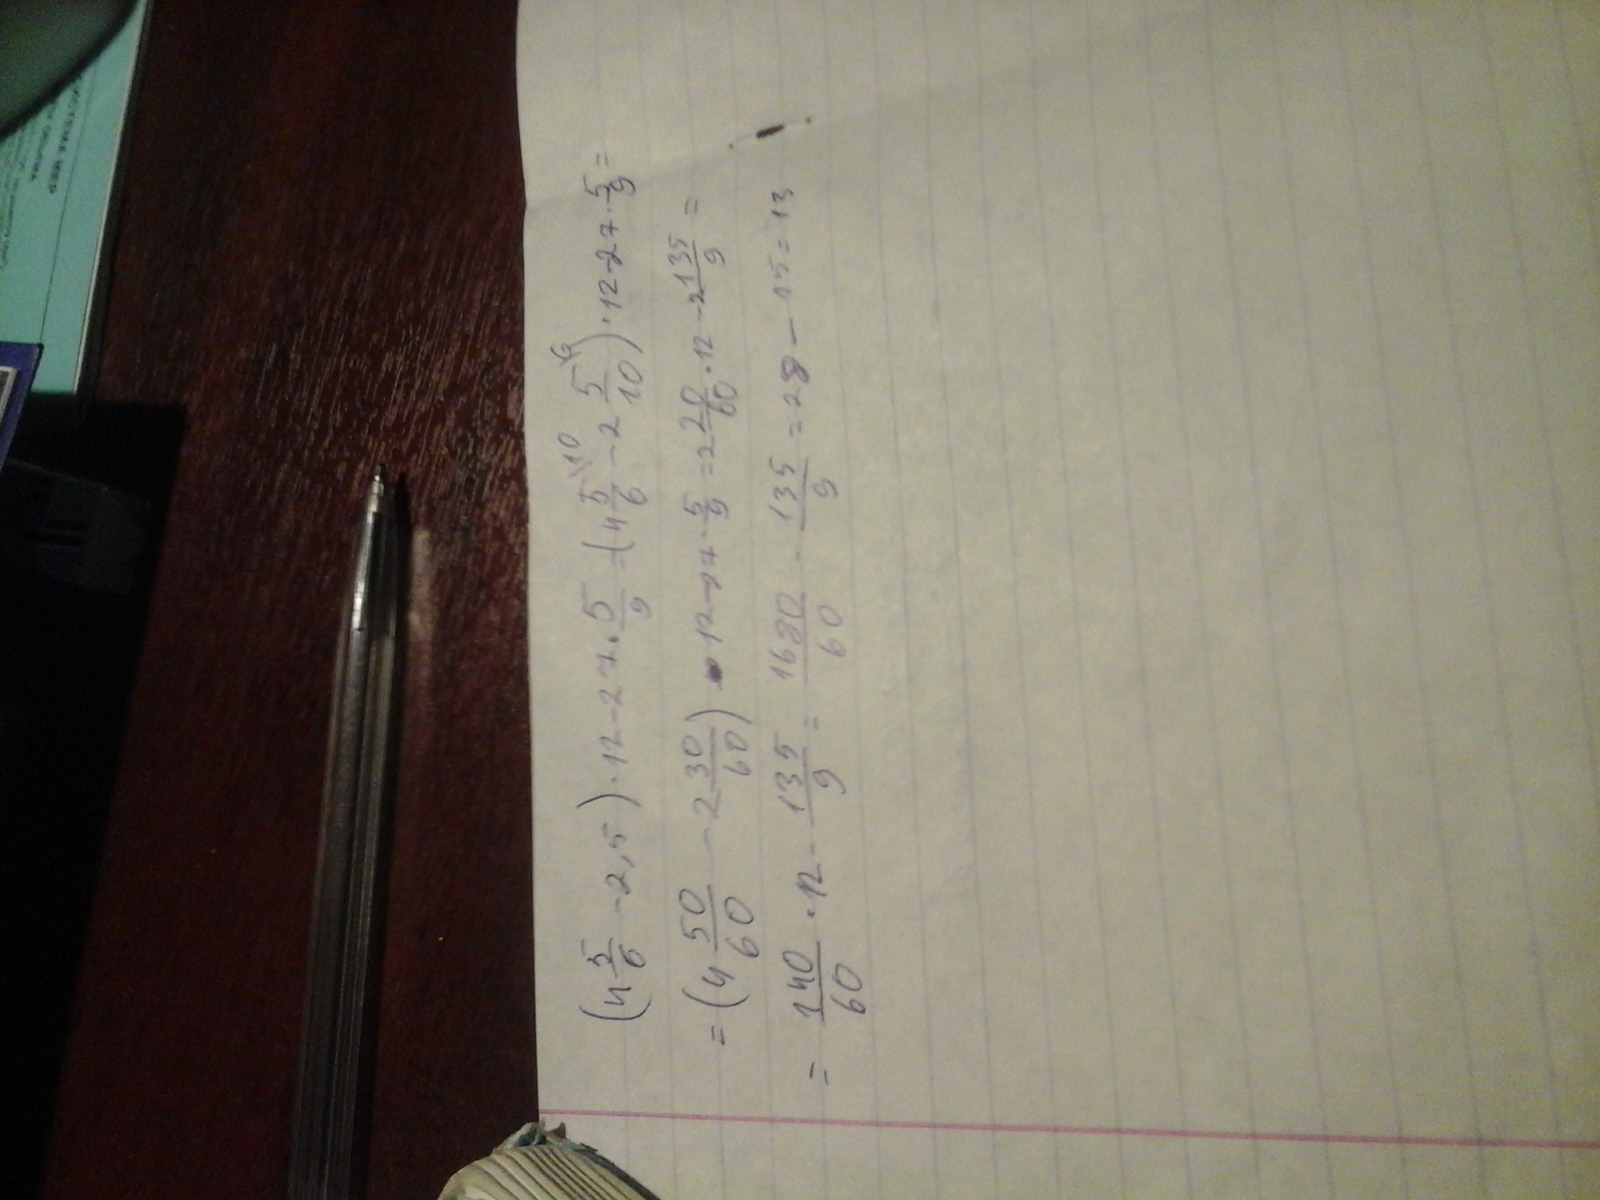 (4 5/6 - 2,5) · 12 - 27 · 5/9 = (4 5/6 \10 - 2 5/10 \6) · 12 - 27 · 5/9 =
= (4 50/60 - 2 30/60) · 12 - 27 · 5/9 = 2 20/60 · 12 - 135/9 =
= 140/60 · 12 - 135/9 = 1680/60 - 135/9 = 28 - 15 = 13
СИСТЕМА МЕР